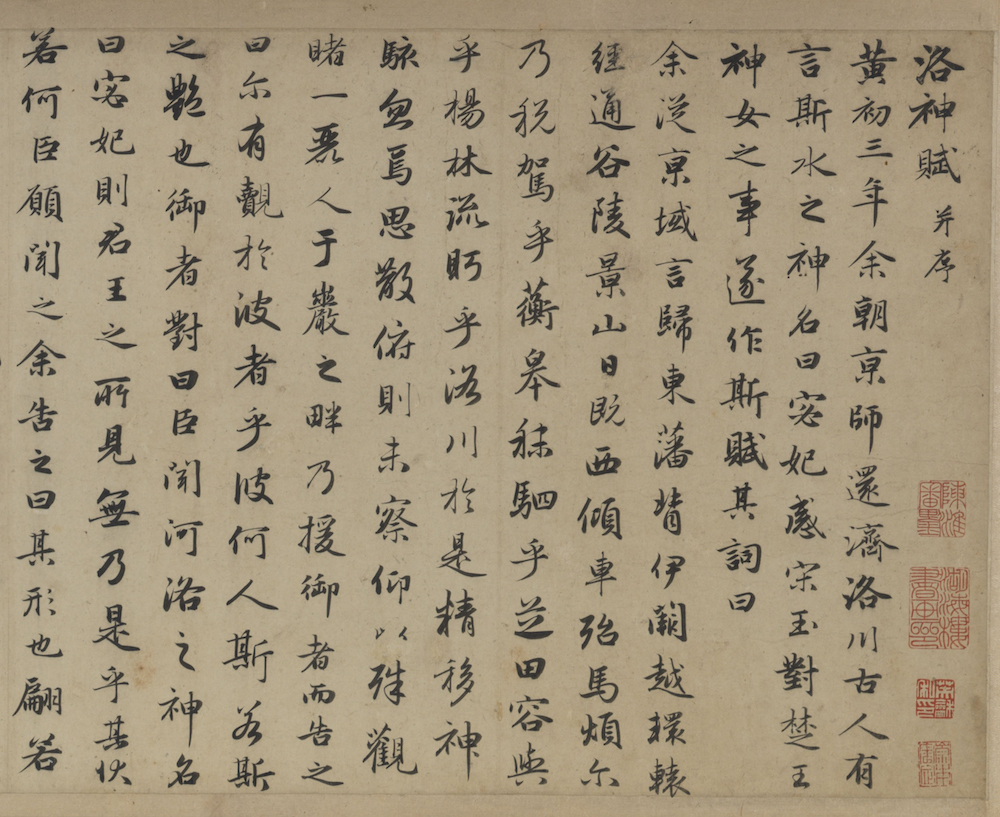 洛神賦 并序
黃初三年余朝京師還濟洛川古人有
言斯水之神名曰宓妃感宋玉對楚王
神女之事遂作斯賦其詞曰
余從京域言歸東藩背伊闕越轘轅
經通谷陵景山日既西傾車殆馬煩尔
乃稅駕乎蘅皋秣駟乎芝田容與
乎楊林流眄乎洛川於是精移神
駭忽焉思散俯則未察仰以殊觀
睹一麗人于巖之畔乃援御者而告之
曰尔有覿於彼者乎彼何人斯若斯
之艷也御者對曰臣聞河洛之神名
曰宓妃則君王之所見無乃是乎其状
若何臣願聞之余告之曰其形也翩若